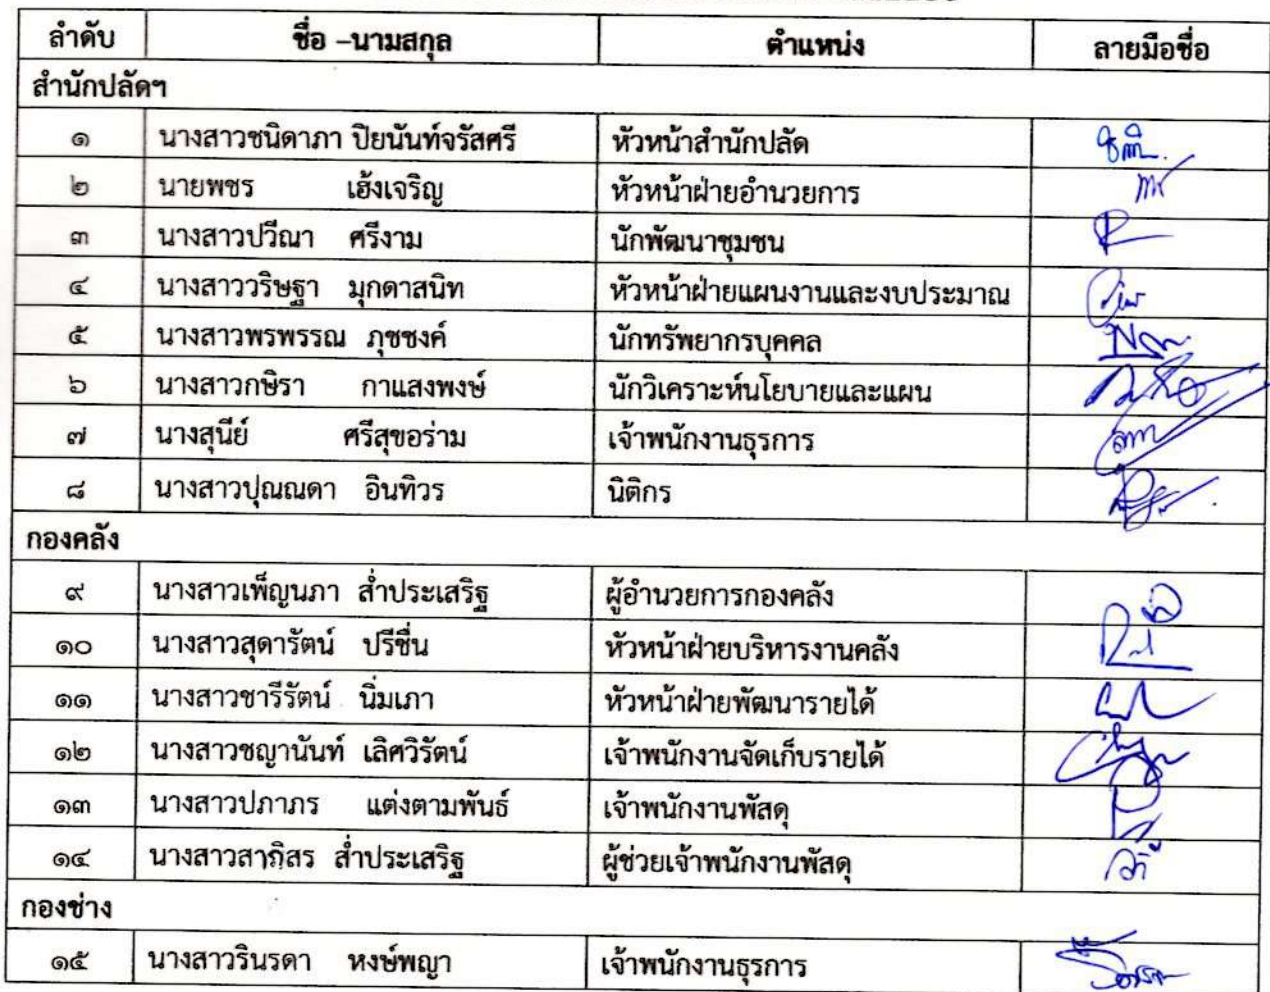 ลำดับ ชื่อ –นามสกุล ตำแหน่ง ลายมือชื่อ
สำนักปลัดฯ
๑ นางสาวชนิดาภา ปิยนันท์จรัสศรี หัวหน้าสำนักปลัด
๒ นายพชร เฮ้งเจริญ หัวหน้าฝ่ายอำนวยการ
๓ นางสาวปวีณา ศรีงาม นักพัฒนาชุมชน
๔ นางสาววริษฐา มุกดาสนิท หัวหน้าฝ่ายแผนงานและงบประมาณ
๕ นางสาวพรพรรณ ภุชชงค์ นักทรัพยากรบุคคล
๖ นางสาวกษิรา กาแสงพงษ์ นักวิเคราะห์นโยบายและแผน
๗ นางสุนีย์ ศรีสุขอร่าม เจ้าพนักงานธุรการ
๘ นางสาวปุณณดา อินทิวร นิติกร
กองคลัง
๙ นางสาวเพ็ญนภา ส่ำประเสริฐ ผู้อำนวยการกองคลัง
๑๐ นางสาวสุดารัตน์ ปรีชื่น หัวหน้าฝ่ายบริหารงานคลัง
๑๑ นางสาวชารีรัตน์ นิ่มเภา หัวหน้าฝ่ายพัฒนารายได้
๑๒ นางสาวชญานันท์ เลิศวิรัตน์ เจ้าพนักงานจัดเก็บรายได้
๑๓ นางสาวปภาภร แต่งตามพันธ์ เจ้าพนักงานพัสดุ
๑๔ นางสาวสาภิสร ส่ำประเสริฐ ผู้ช่วยเจ้าพนักงานพัสดุ
กองช่าง
๑๕ นางสาวรินรดา หงษ์พญา เจ้าพนักงานธุรการ